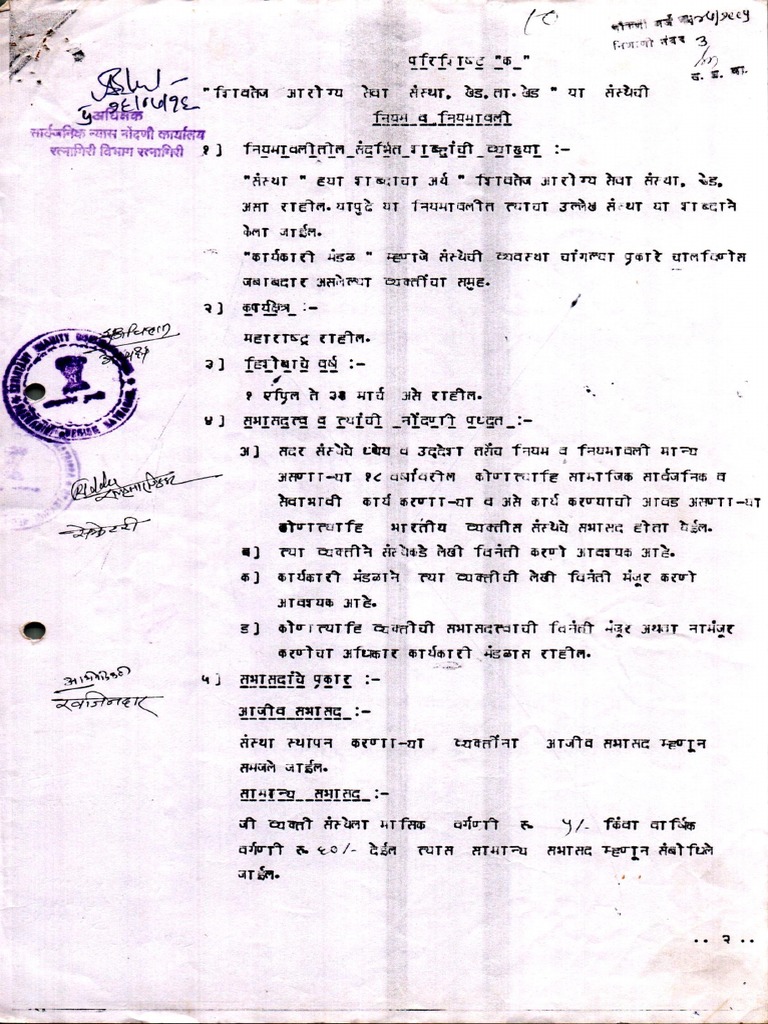 निशाणी नंबर 3
परिशिष्ट "क"
"शिवतेज आरोग्य सेवा संस्था, खेड,ता.खेड " या संस्थेची
नियम व नियमावली
अधिक्षक
सार्वजनिक न्यास नोंदणी कार्यालय
रत्नागिरी विभाग रत्नागिरी
१ ] नियमावलीतील संदर्भित शब्दांची व्याख्या :-
"संस्था " हया शब्दाचा अर्थ " शिवतेज आरोग्य सेवा संस्था, खेड,
असा राहील.यापुढे या नियमावलीत त्याचा उल्लेख संस्था या शब्दाने
केला जाईल.
"कार्यकारी मंडळ " म्हणजे संस्थेची व्यवस्था चांगल्या प्रकारे चालविणेस
जबाबदार असलेल्या व्यक्तींचा समुह.
२ ] कार्यक्षेत्र :-
महाराष्ट्र राहील.
३ ] हिशोबाचे वर्ष :-
१ एप्रिल ते ३१ मार्च असे राहील.
४ ] सभासदत्व व त्यांची नोंदणी पध्दत :-
अ ] सदर संस्थेचे ध्येय व उद्देश तसेच नियम व नियमावली मान्य
असणा-या १८ वर्षावरील कोणत्याहि सामाजिक सार्वजनिक व
सेवाभावी कार्य करणा-या व असे कार्य करण्याची आवड असणा-या
कोणत्याहि भारतीय व्यक्तीस संस्थेचे सभासद होता येईल.
ब ] त्या व्यक्तीने संस्थेकडे लेखी विनंती करणे आवश्यक आहे.
क ] कार्यकारी मंडळाने त्या व्यक्तीची लेखी विनंती मंजूर करणे
आवश्यक आहे.
ड ] कोणत्याहि व्यक्तीची सभासदत्वाची विनंती मंजूर अथवा नामंजूर
करणेचा अधिकार कार्यकारी मंडळास राहील.
सेक्रेटरी
५ ] सभासदांचे प्रकार :-
आजीव सभासद :-
खजिनदार
संस्था स्थापन करणा-या व्यक्तींना आजीव सभासद म्हणून
समजले जाईल.
सामान्य सभासद :-
जी व्यक्ती संस्थेला मासिक वर्गणी रू ५/- किंवा वार्षिक
वर्गणी रू ६०/- देईल त्यास सामान्य सभासद म्हणून संबोधिले
जाईल.
.. २ ..